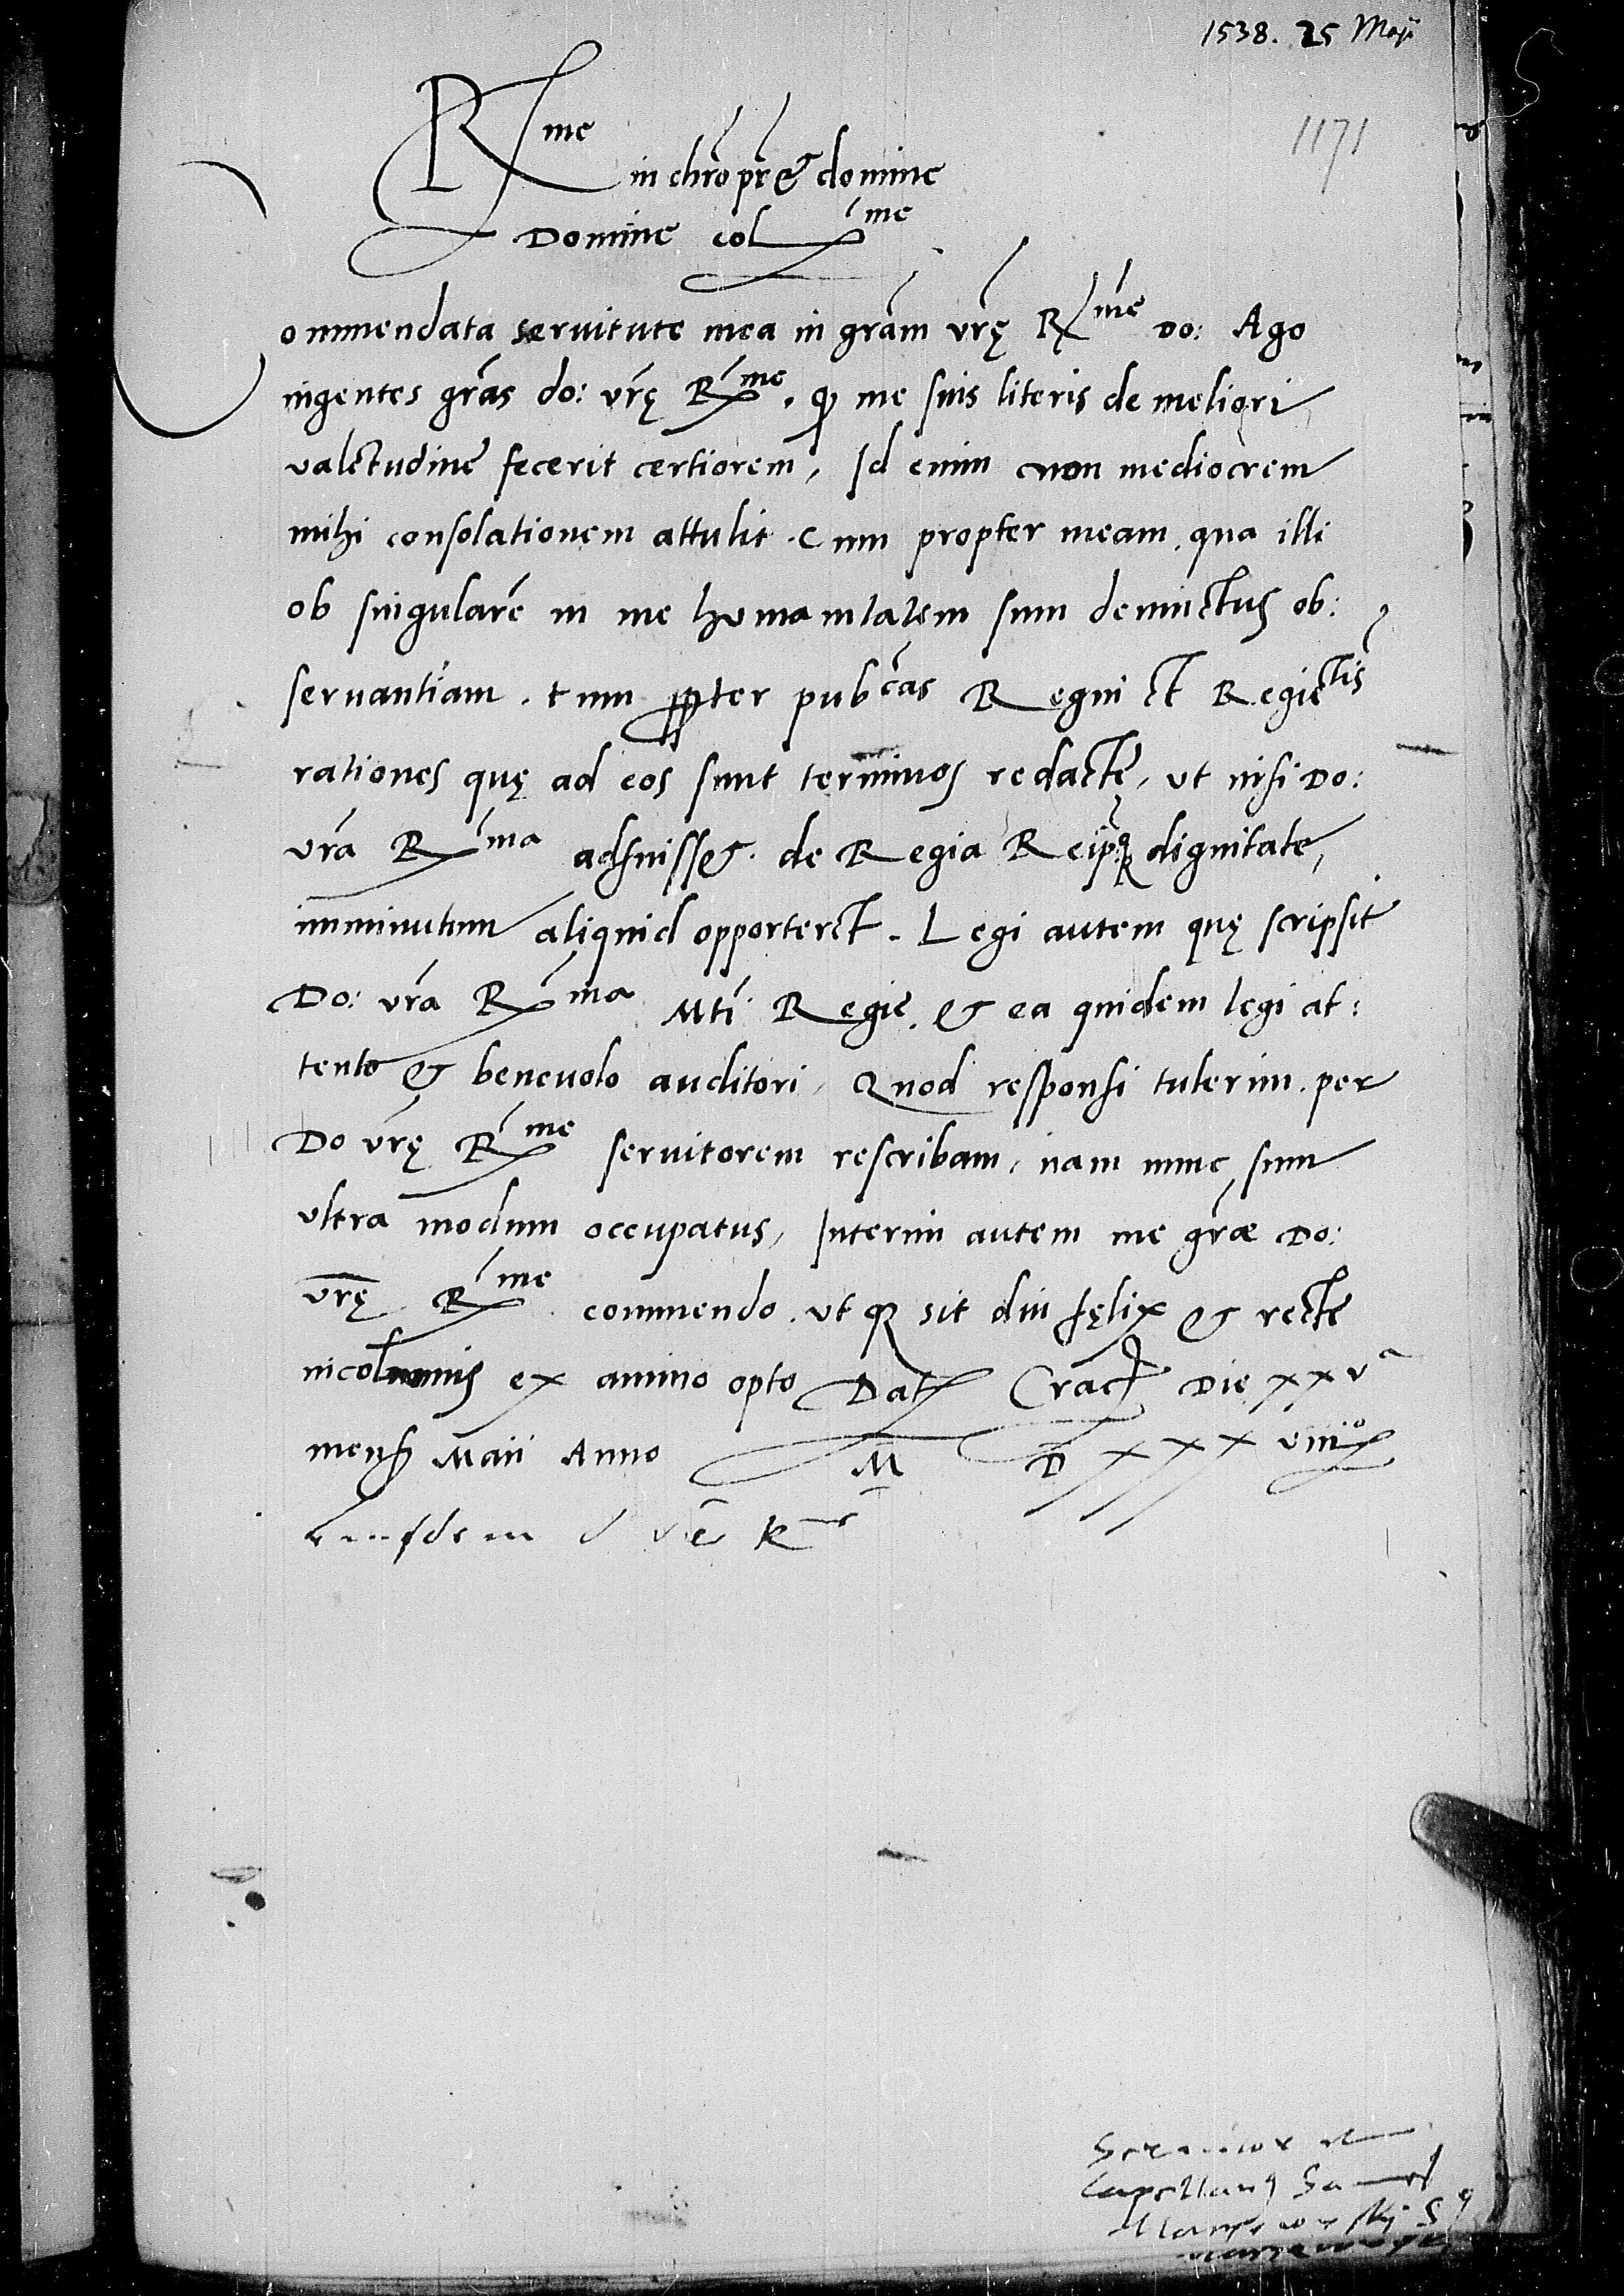 1538. 25 Maji
1171
R me
in chrõ pr̃e & domine
Domine col me
ommendata servitute mea in grãm vrę̃ R me Do: Ago
ingentes grãs do: vrę̃ R me. qɜ me suis literis de meliori
valetudine fecerit certiorem, Id enim non mediocrem
mihi consolationem attulit. Cum propter meam, qua illi
ob singularẽ in me humanitatem sum devinctus ob:
servantiam. tum ꝓpter pubcas Regni et Regie tis
rationes quę ad eos sunt terminos redacte, ut nisi Do:
vrã R ma adfuisset. de Regia Reipq dignitate,
imminutum aliquid opporteret. Legi autem quę scripsit
Do: vrã R ma Mti Regie. & ea quidem legi at:
tento & benevolo auditori, Quod responsi tulerim. per
Do vrę̃ R me servitorem rescribam, nam nunc sum
ultra modum occupatus, Interim autem me grãe Do:
vrę̃ R me commendo. ut qɜ sit diu fęlix & recte
incolumis ex animo opto Dat Crac Die xxva
mens Maii Anno M D xxx viiio
Eiusdem d vẽ R
Capellanus Sam
Maczieiowskj S